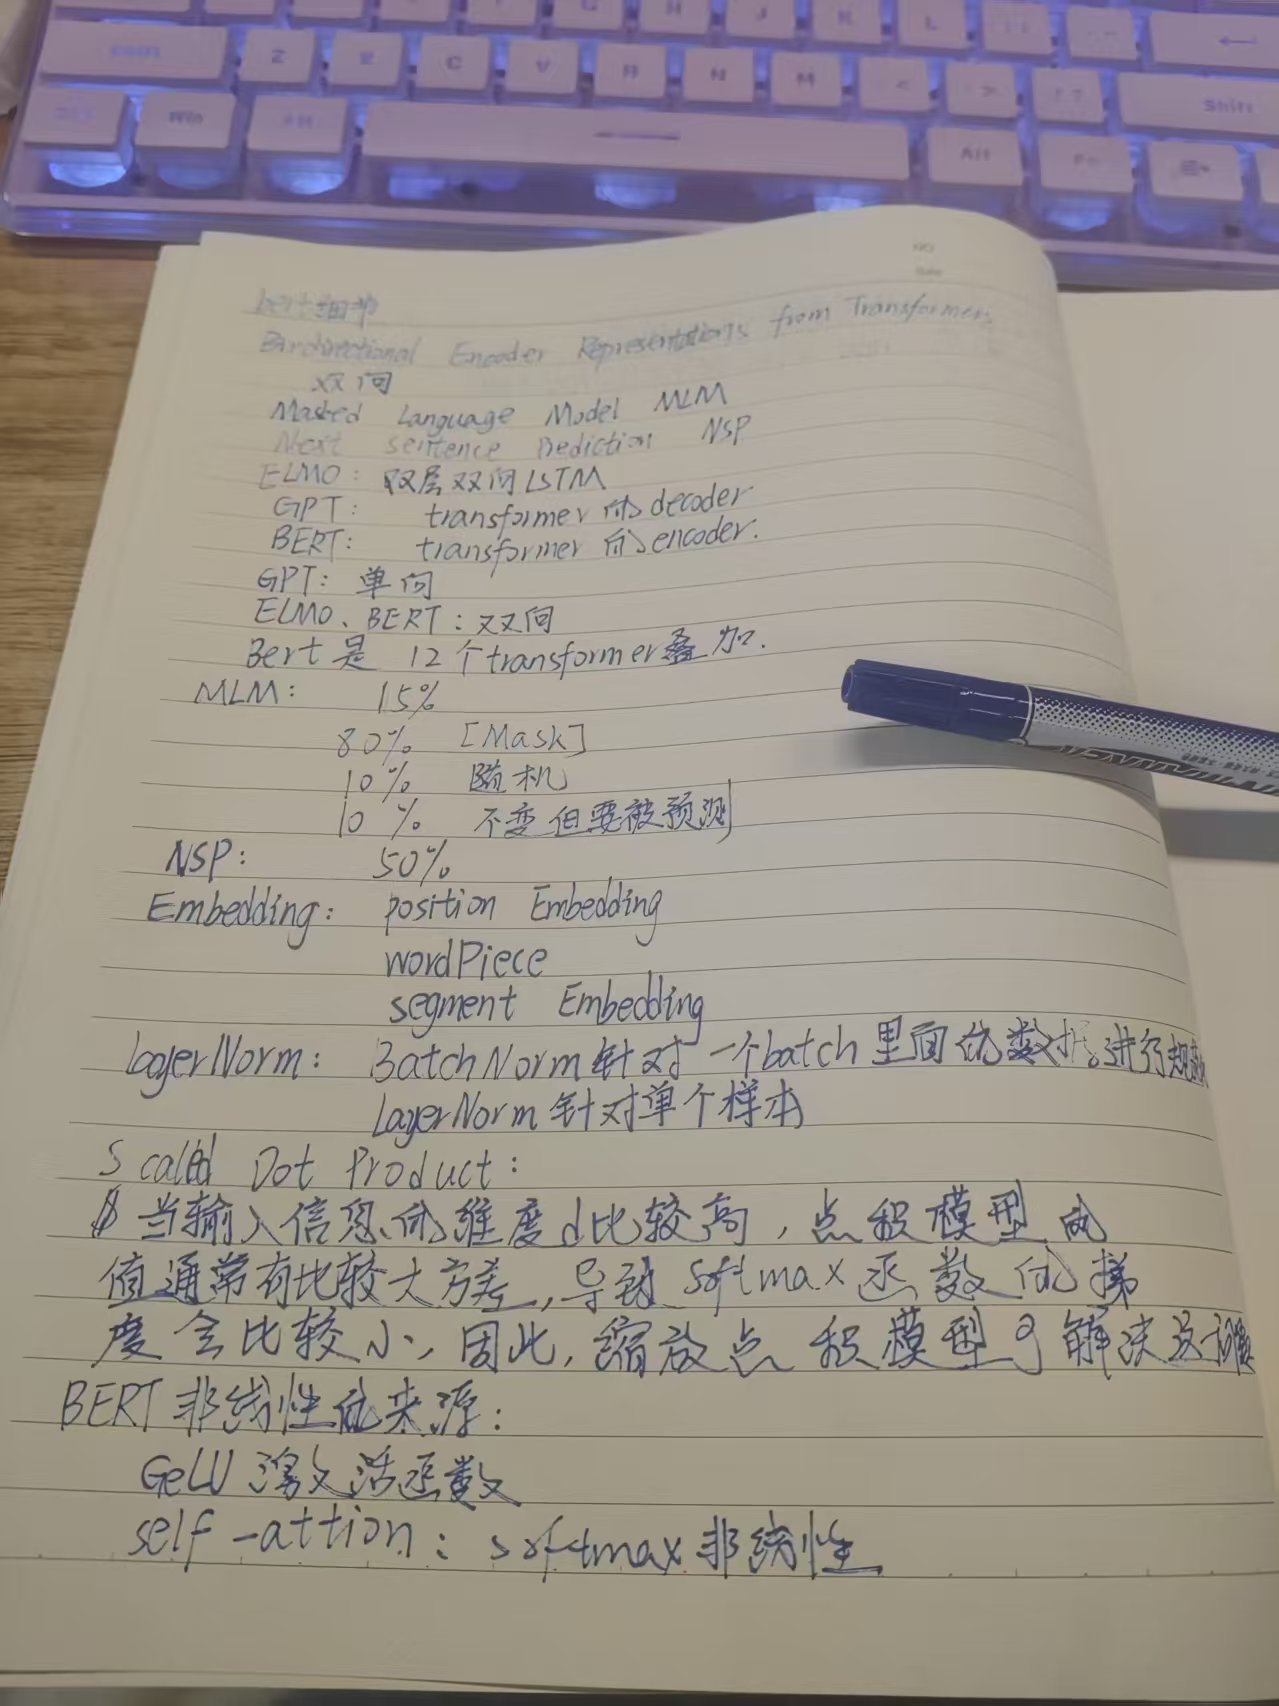 Z
C
V
B
N
M
Win
Alt
Shift
Alt
Fn
G
H
J
K
L
NO
Date
bert细节
Birdirectional Encoder Representations from Transformers
双向
Masked Language Model MLM
Next sentence Prediction NSP
ELMO: 双层双向LSTM
GPT: transformer的decoder
BERT: transformer的encoder.
GPT: 单向
ELMO、BERT: 双向
Bert是 12个transformer叠加.
MLM: 15%
80% [Mask]
10% 随机
10% 不变但要被预测
NSP: 50%
Embedding: position Embedding
wordPiece
segment Embedding
LayerNorm: BatchNorm针对一个batch里面的数据进行规范
LayerNorm针对单个样本
Scaled Dot Product:
当输入信息的维度d比较高,点积模型的
值通常有比较大方差,导致softmax函数的梯
度会比较小,因此,缩放点积模型可解决这问题
BERT非线性的来源:
GeLU激活函数
self-attion: softmax非线性